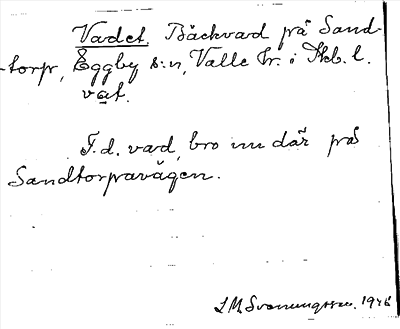 Vadet. Bäckvad på Sand-
torp, Eggby s:n, Valle hr. i Skb. l.
vat.
F.d. vad, bro nu där på
Sandtorpavägen.
S M Svanungsson. 1946